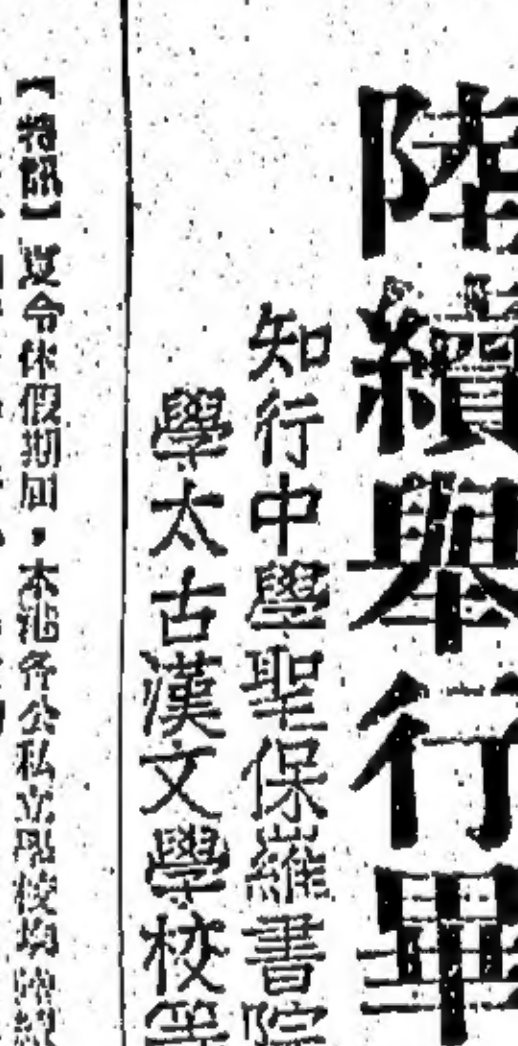 陸續舉行畢
知行中學聖保羅書院
學太古漢文學校等
【特訊】夏令休假期間,本港各公私立學校均陸續